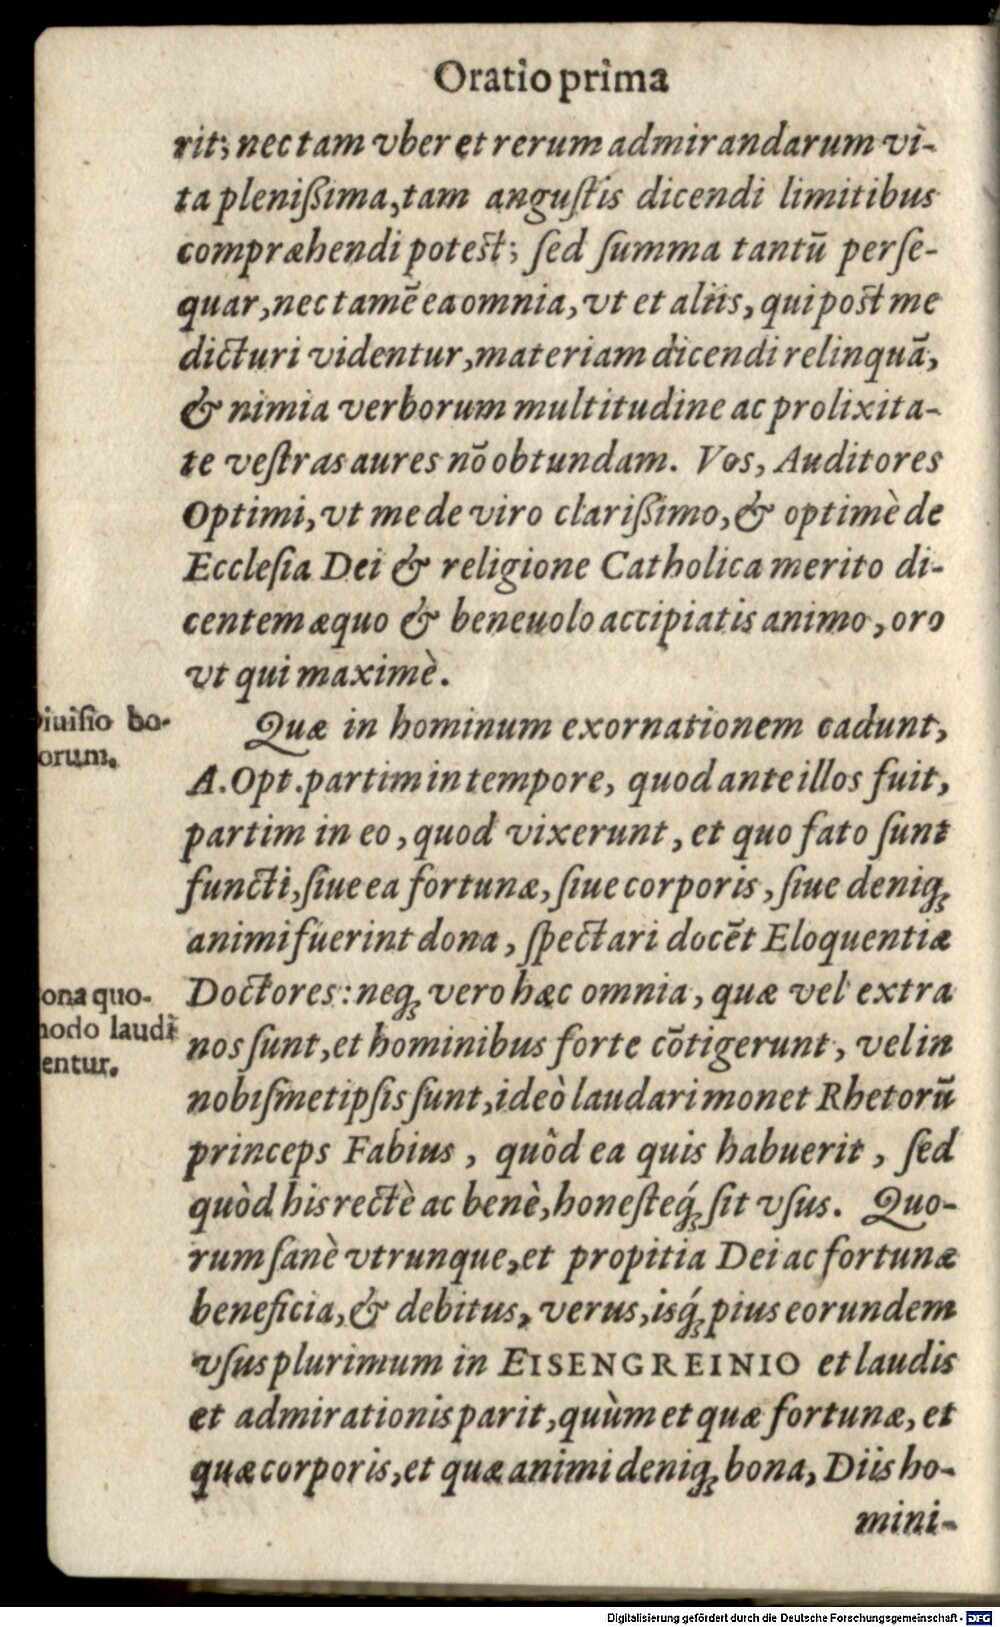 Oratio prima
rit; nec tam vber et rerum admirandarum vi-
ta pleniſsima, tam anguſtis dicendi limitibus
compræhendi poteſt; ſed ſumma tantū perſe-
quar, nec tamē ea omnia, vt et aliis, qui poſt me
dicturi videntur, materiam dicendi relinquā,
& nimia verborum multitudine ac prolixita-
te veſtras aures nō obtundam. Vos, Auditores
Optimi, vt me de viro clariſsimo, & optimè de
Eccleſia Dei & religione Catholica merito di-
centem æquo & beneuolo accipiatis animo, oro
vt qui maximè.
iuiſio bo-
orum.
Quæ in hominum exornationem cadunt,
A. Opt. partim in tempore, quod ante illos fuit,
partim in eo, quod vixerunt, et quo fato ſunt
functi, ſiue ea fortunæ, ſiue corporis, ſiue deniq;
animi fuerint dona, ſpectari docēt Eloquentiæ
ona quo-
odo laudi
entur.
Doctores: neq; vero hæc omnia, quæ vel extra
nos ſunt, et hominibus forte cōtigerunt, vel in
nobiſmetipſis ſunt, ideò laudari monet Rhetorū
princeps Fabius, quòd ea quis habuerit, ſed
quòd his rectè ac benè, honeſteq́; ſit vſus. Quo-
rum ſanè vtrunque, et propitia Dei ac fortunæ
beneficia, & debitus, verus, isq́; pius eorundem
vſus plurimum in EISENGREINIO et laudis
et admirationis parit, quùm et quæ fortunæ, et
quæ corporis, et quæ animi deniq; bona, Diis ho-
mini-
Digitalisierung gefördert durch die Deutsche Forschungsgemeinschaft - DFG